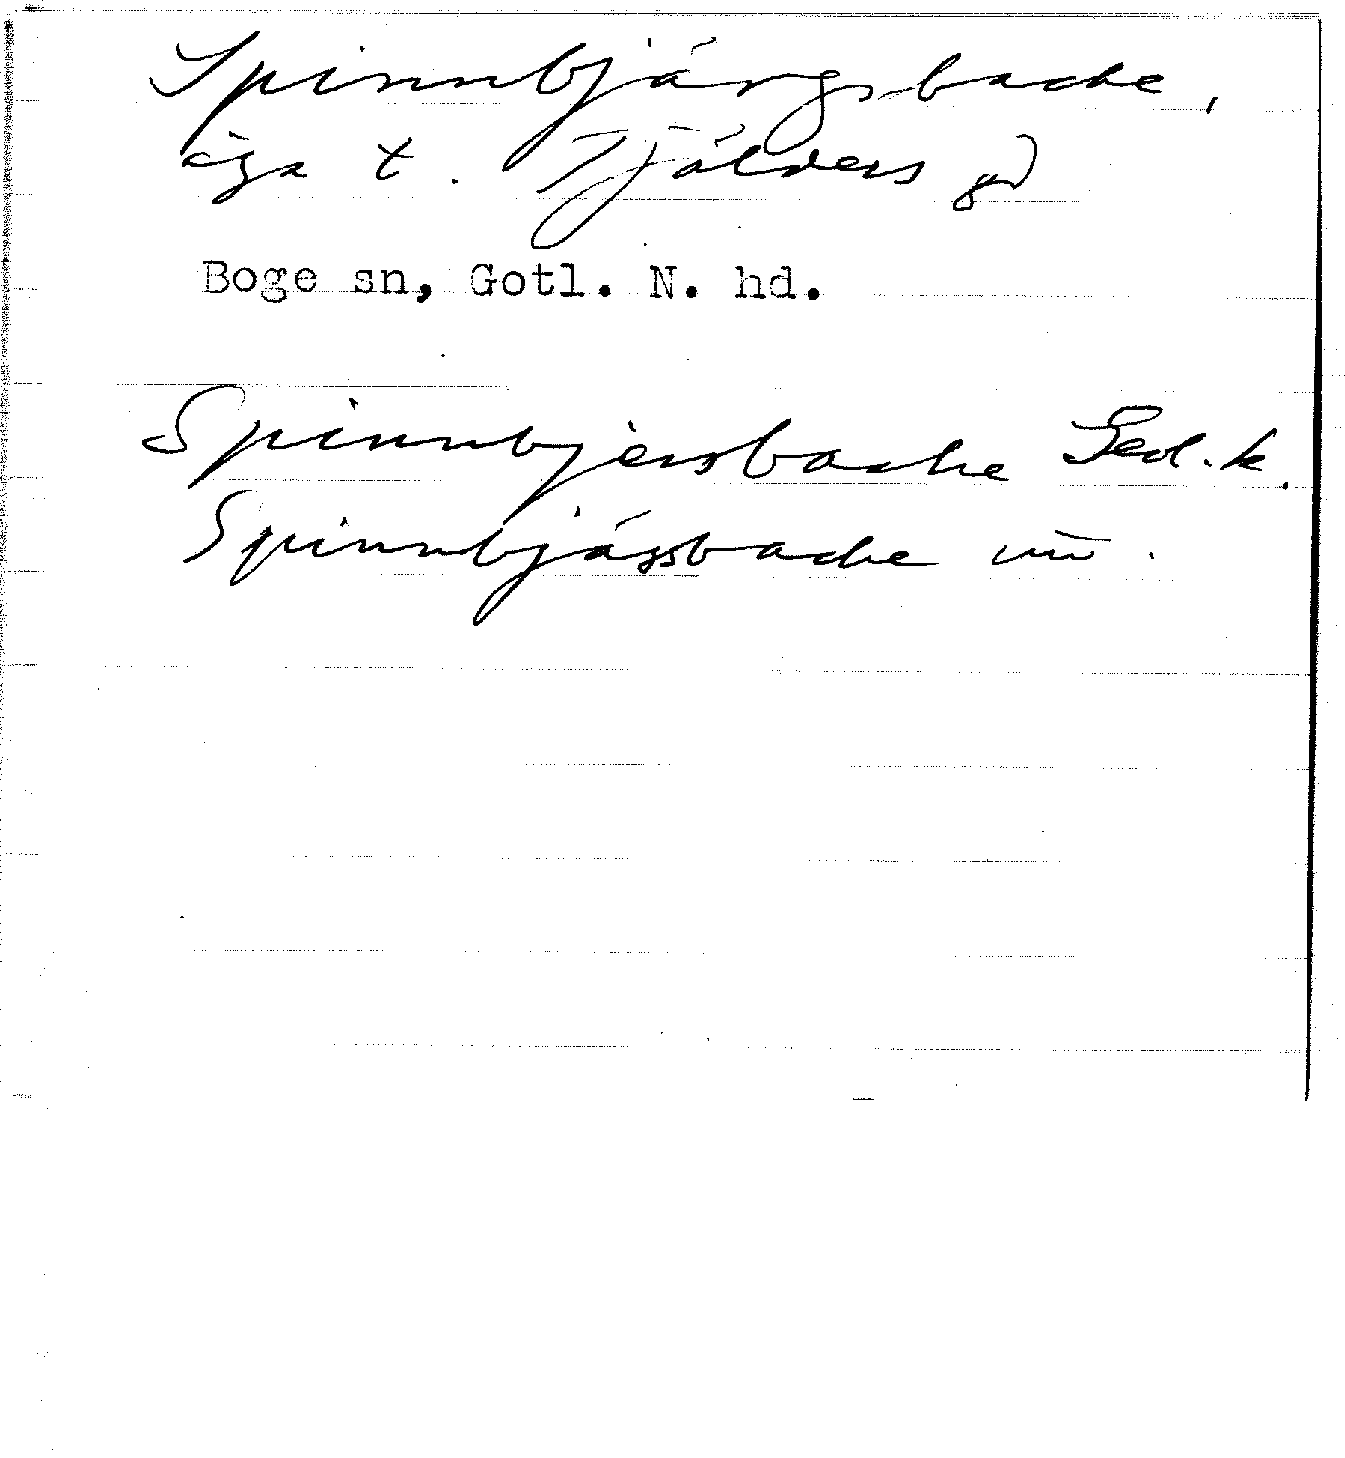 Spinnbjärgsbacke,
äga t. Tjälders gd
Boge sn, Gotl. N. hd.
Spinnbjersbacke Ged. k.
Spinnbjässbacke